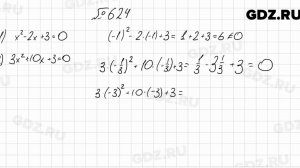 GDZ.RU
№ 624
1) x² - 2x + 3 = 0   (-1)² - 2·(-1) + 3 = 1 + 2 + 3 = 6 ≠ 0
) 3x² + 10x + 3 = 0   3·(-1/3)² + 10·(-1/3) + 3 = 1/3 - 3 1/3 + 3 = 0
3·(-3)² + 10·(-3) + 3 =
GDZ.RU